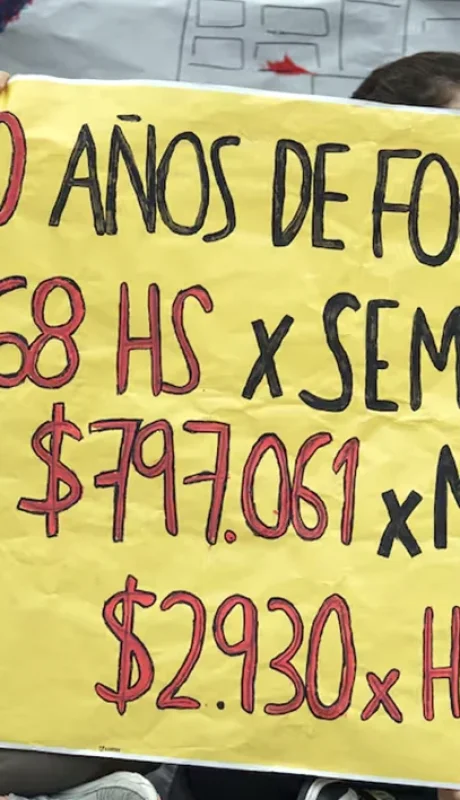 0 AÑOS DE FO
68 HS x SEM
$797.061 x M
$2.930 x H